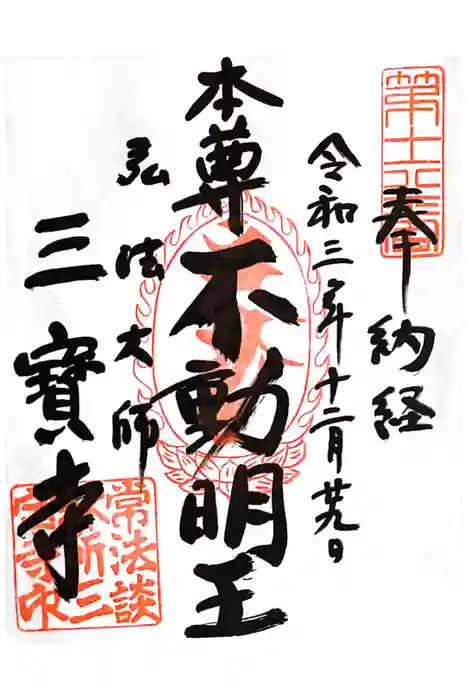 第十六番
奉納経
令和三年十二月廿九日
本尊不動明王
弘法大師
三寶寺
常法談
林所三
寶寺印